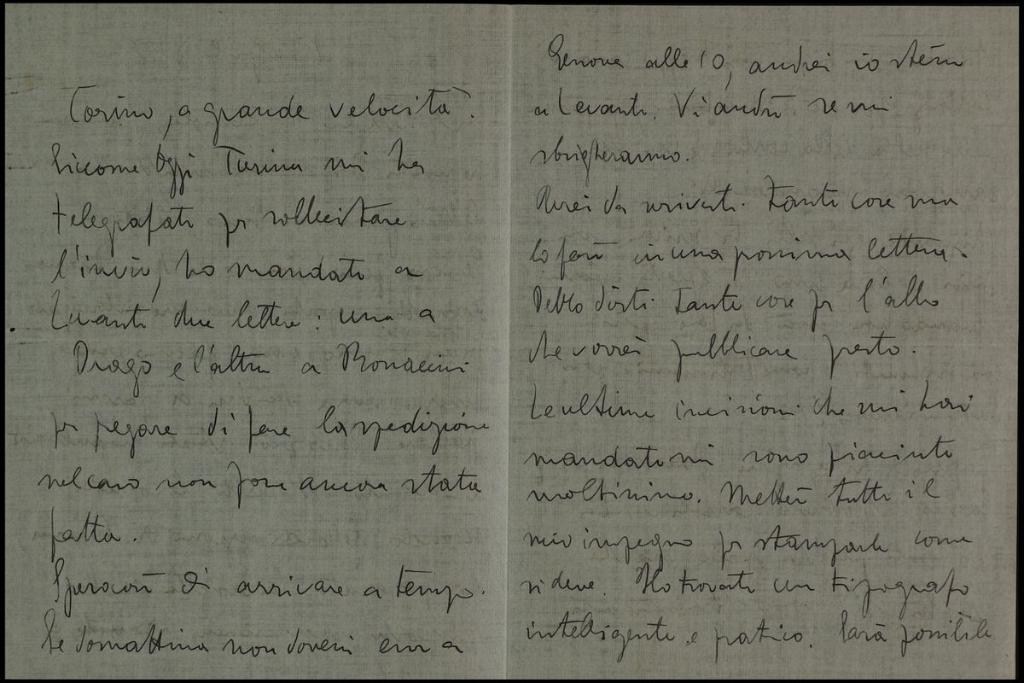 Torino, a grande velocità.
Siccome oggi Turina mi ha
telegrafato pr sollecitare
l'invio, ho mandato a
Levanto due lettere: una a
Drago e l'altra a Bonaccini
pr pregare di fare la spedizione
nel caso non fosse ancora stata
fatta.
Spero così di arrivare a tempo.
Se domattina non dovessi essere a
Genova alle 10, andrei io stesso
a Levanto. Vi andrò se mi
sbrigheranno.
Avrei da scriverti tante cose ma
lo farò in una prossima lettera.
Debbo dirti tante cose pr l'albo
che vorrei pubblicare presto.
Le ultime incisioni che mi hai
mandato mi sono piaciute
moltissimo. Metterò tutto il
mio impegno pr stamparle come
si deve. Ho trovato un tipografo
intelligente e pratico. Sarà possibile